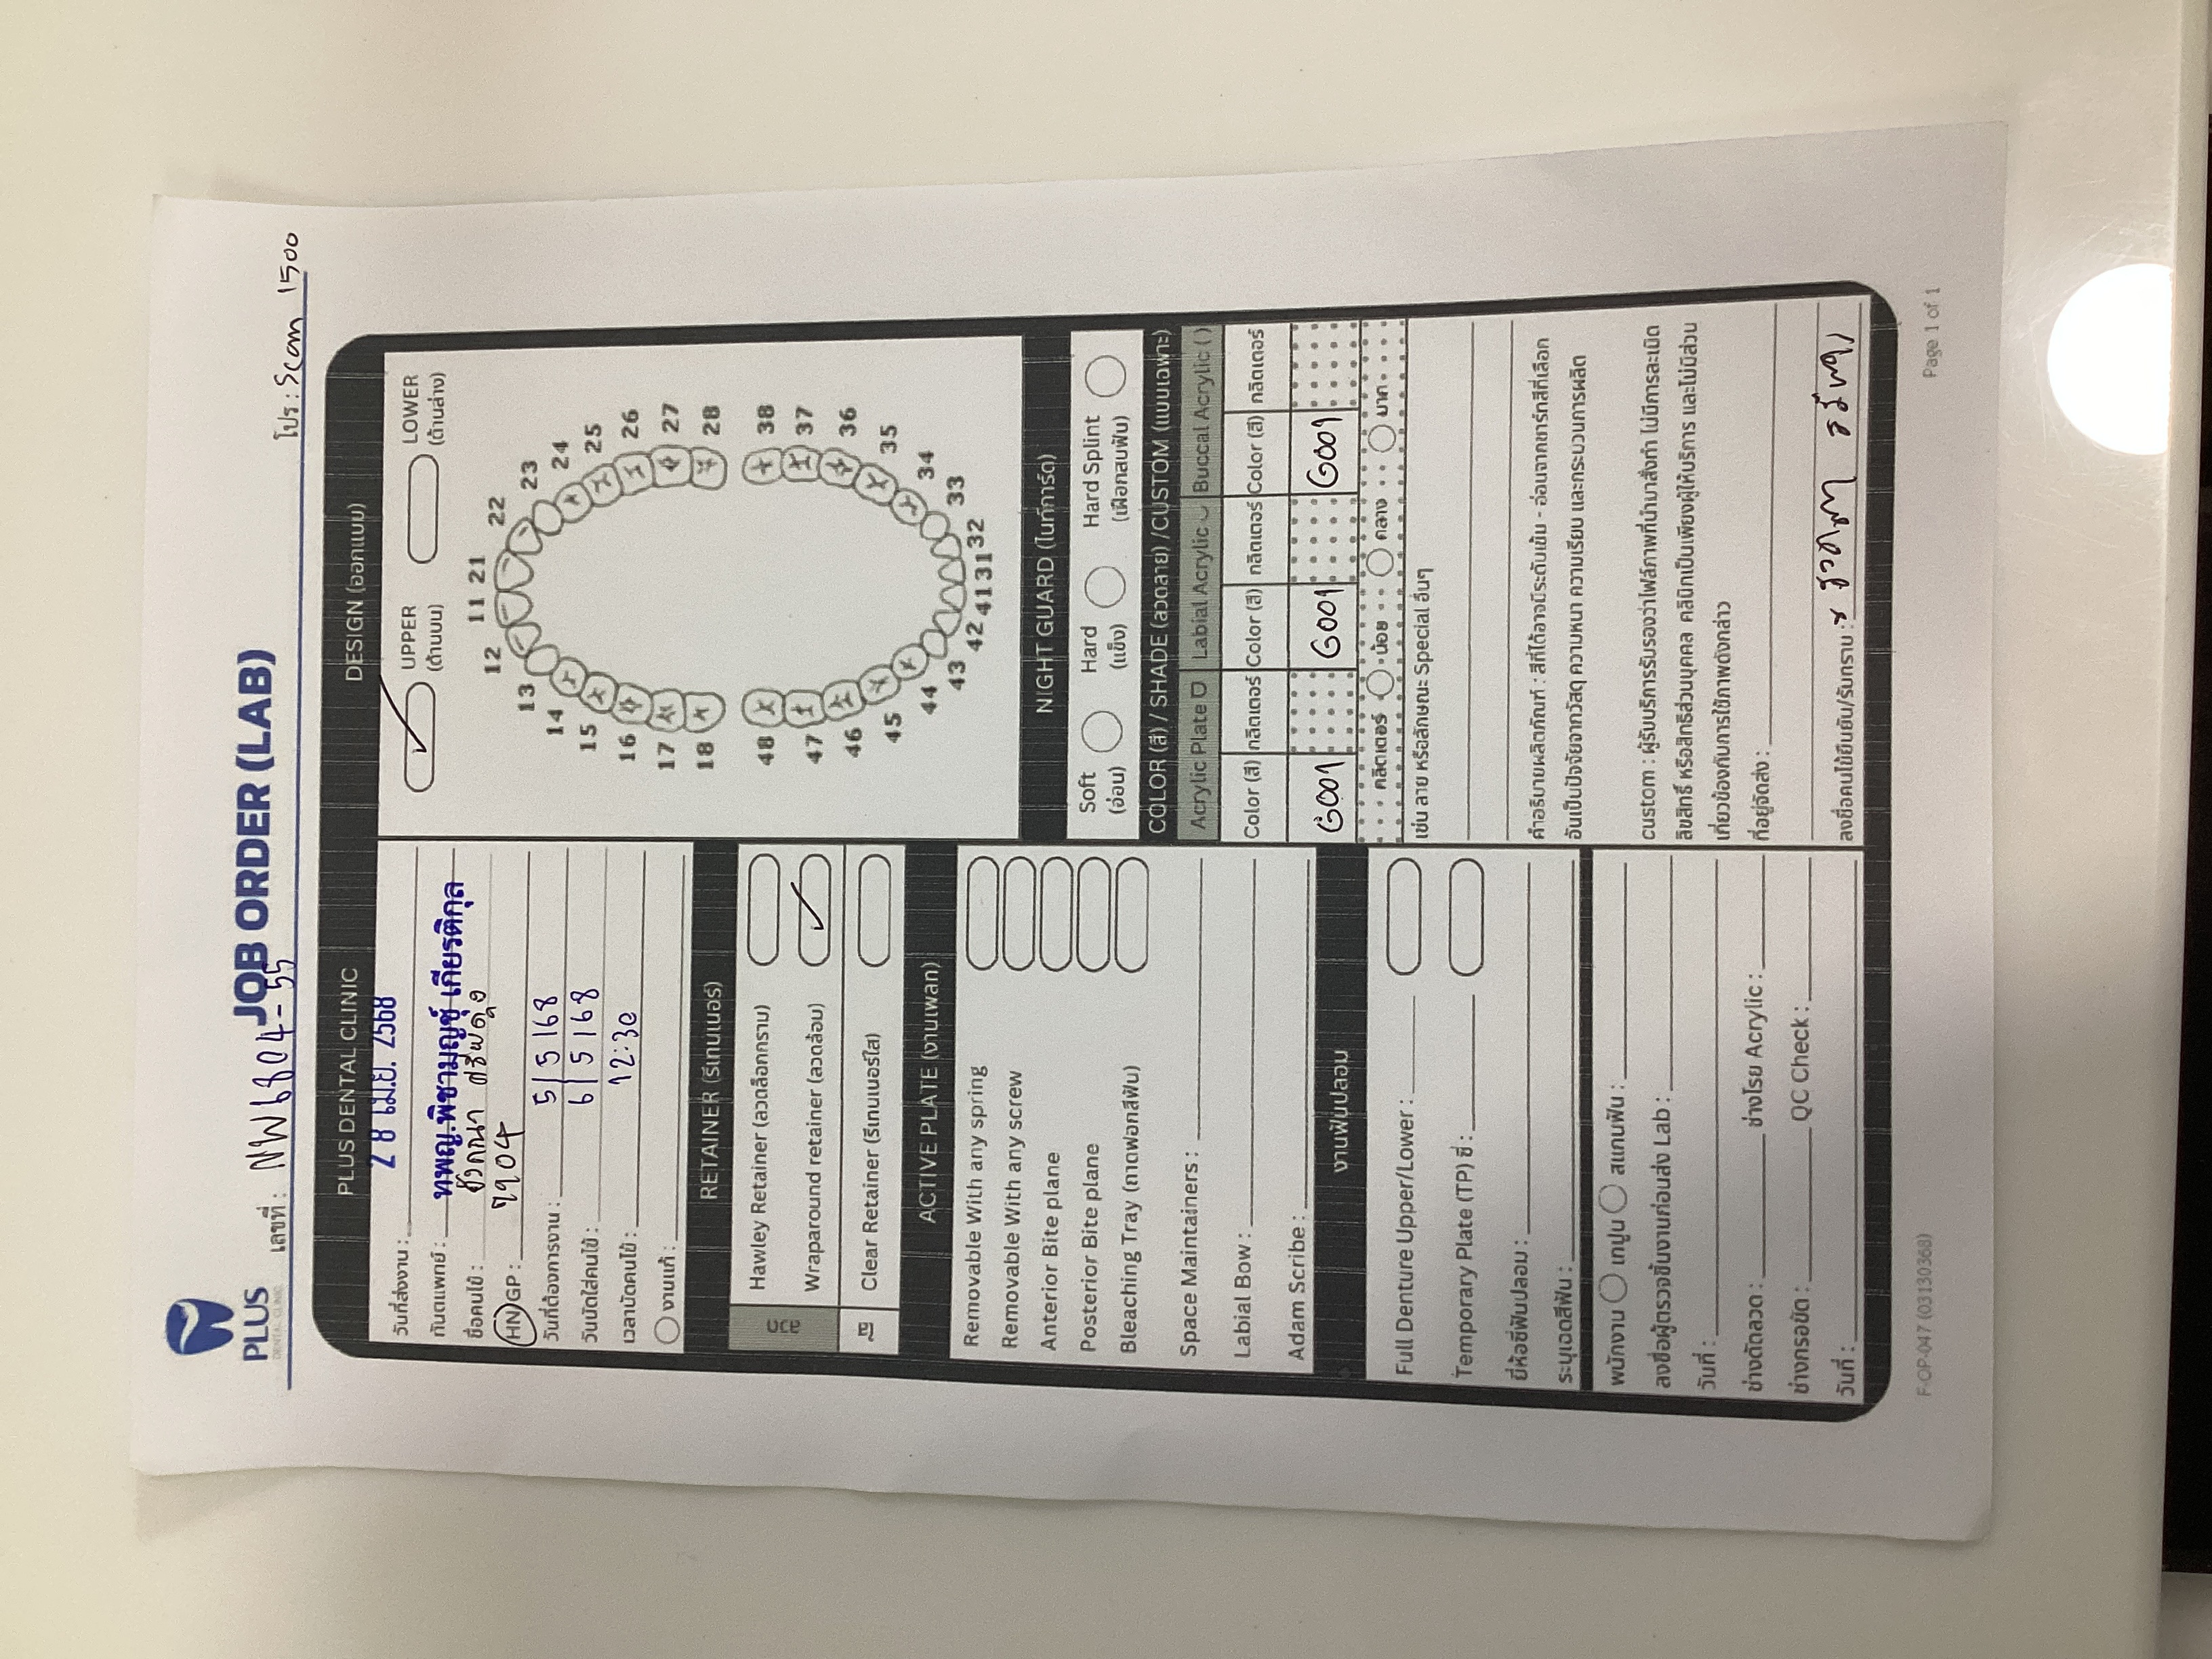 PLUS
DENTAL CLINIC
JOB ORDER (LAB)
เลขที่ : NW6804-55
โปร : Scan 1500
PLUS DENTAL CLINIC
วันที่ส่งงาน : 28 เม.ย. 2568
ทันตแพทย์ : ทพญ.พิชามญชุ์ เกียรติกุล
ชื่อคนไข้ :
HN/GP : 7904
วันที่ต้องการงาน : 5/5/68
วันนัดใส่คนไข้ : 6/5/68
เวลานัดคนไข้ : 12:30
งานแก้ :
RETAINER (รีเทนเนอร์)
ลวด
Hawley Retainer (ลวดล็อกกราม)
Wraparound retainer (ลวดล้อม) ✓
ใส
Clear Retainer (รีเทนเนอร์ใส)
ACTIVE PLATE (งานเพลท)
Removable With any spring
Removable With any screw
Anterior Bite plane
Posterior Bite plane
Bleaching Tray (ถาดฟอกสีฟัน)
Space Maintainers :
Labial Bow :
Adam Scribe :
งานฟันปลอม
Full Denture Upper/Lower :
Temporary Plate (TP) ซี่ :
ยี่ห้อซี่ฟันปลอม :
ระบุเฉดสีฟัน :
พนักงาน เทปูน สแกนฟัน :
ลงชื่อผู้ตรวจชิ้นงานก่อนส่ง Lab :
วันที่ :
ช่างดัดลวด : ช่างโรย Acrylic :
ช่างกรอขัด : QC Check :
วันที่ :
DESIGN (ออกแบบ)
✓ UPPER LOWER
(ด้านบน) (ด้านล่าง)
11 21
12 22
13 23
14 24
15 25
16 26
17 27
18 28
48 38
47 37
46 36
45 35
44 34
43 33
42 41 31 32
NIGHT GUARD (ไนท์การ์ด)
Soft Hard Hard Splint
(อ่อน) (แข็ง) (เฝือกสบฟัน)
COLOR (สี) / SHADE (ลวดลาย) /CUSTOM (แบบเฉพาะ)
Acrylic Plate Labial Acrylic Buccal Acrylic ( )
Color (สี) กลิตเตอร์ Color (สี) กลิตเตอร์ Color (สี) กลิตเตอร์
G001 G001 G001
กลิตเตอร์ น้อย กลาง มาก
เช่น ลาย หรือลักษณะ Special อื่นๆ
คำอธิบายผลิตภัณฑ์ : สีที่ได้อาจมีระดับเข้ม - อ่อนจากชาร์ทสีที่เลือก
อันเป็นปัจจัยจากวัสดุ ความหนา ความเรียบ และกระบวนการผลิต
custom : ผู้รับบริการรับรองว่าไฟล์ภาพที่นำมาสั่งทำ ไม่มีการละเมิด
ลิขสิทธิ์ หรือสิทธิส่วนบุคคล คลินิกเป็นเพียงผู้ให้บริการ และไม่มีส่วน
เกี่ยวข้องกับการใช้ภาพดังกล่าว
ที่อยู่จัดส่ง :
ลงชื่อคนไข้ยืนยัน/รับทราบ :
F-OP-047 (03130368)
Page 1 of 1